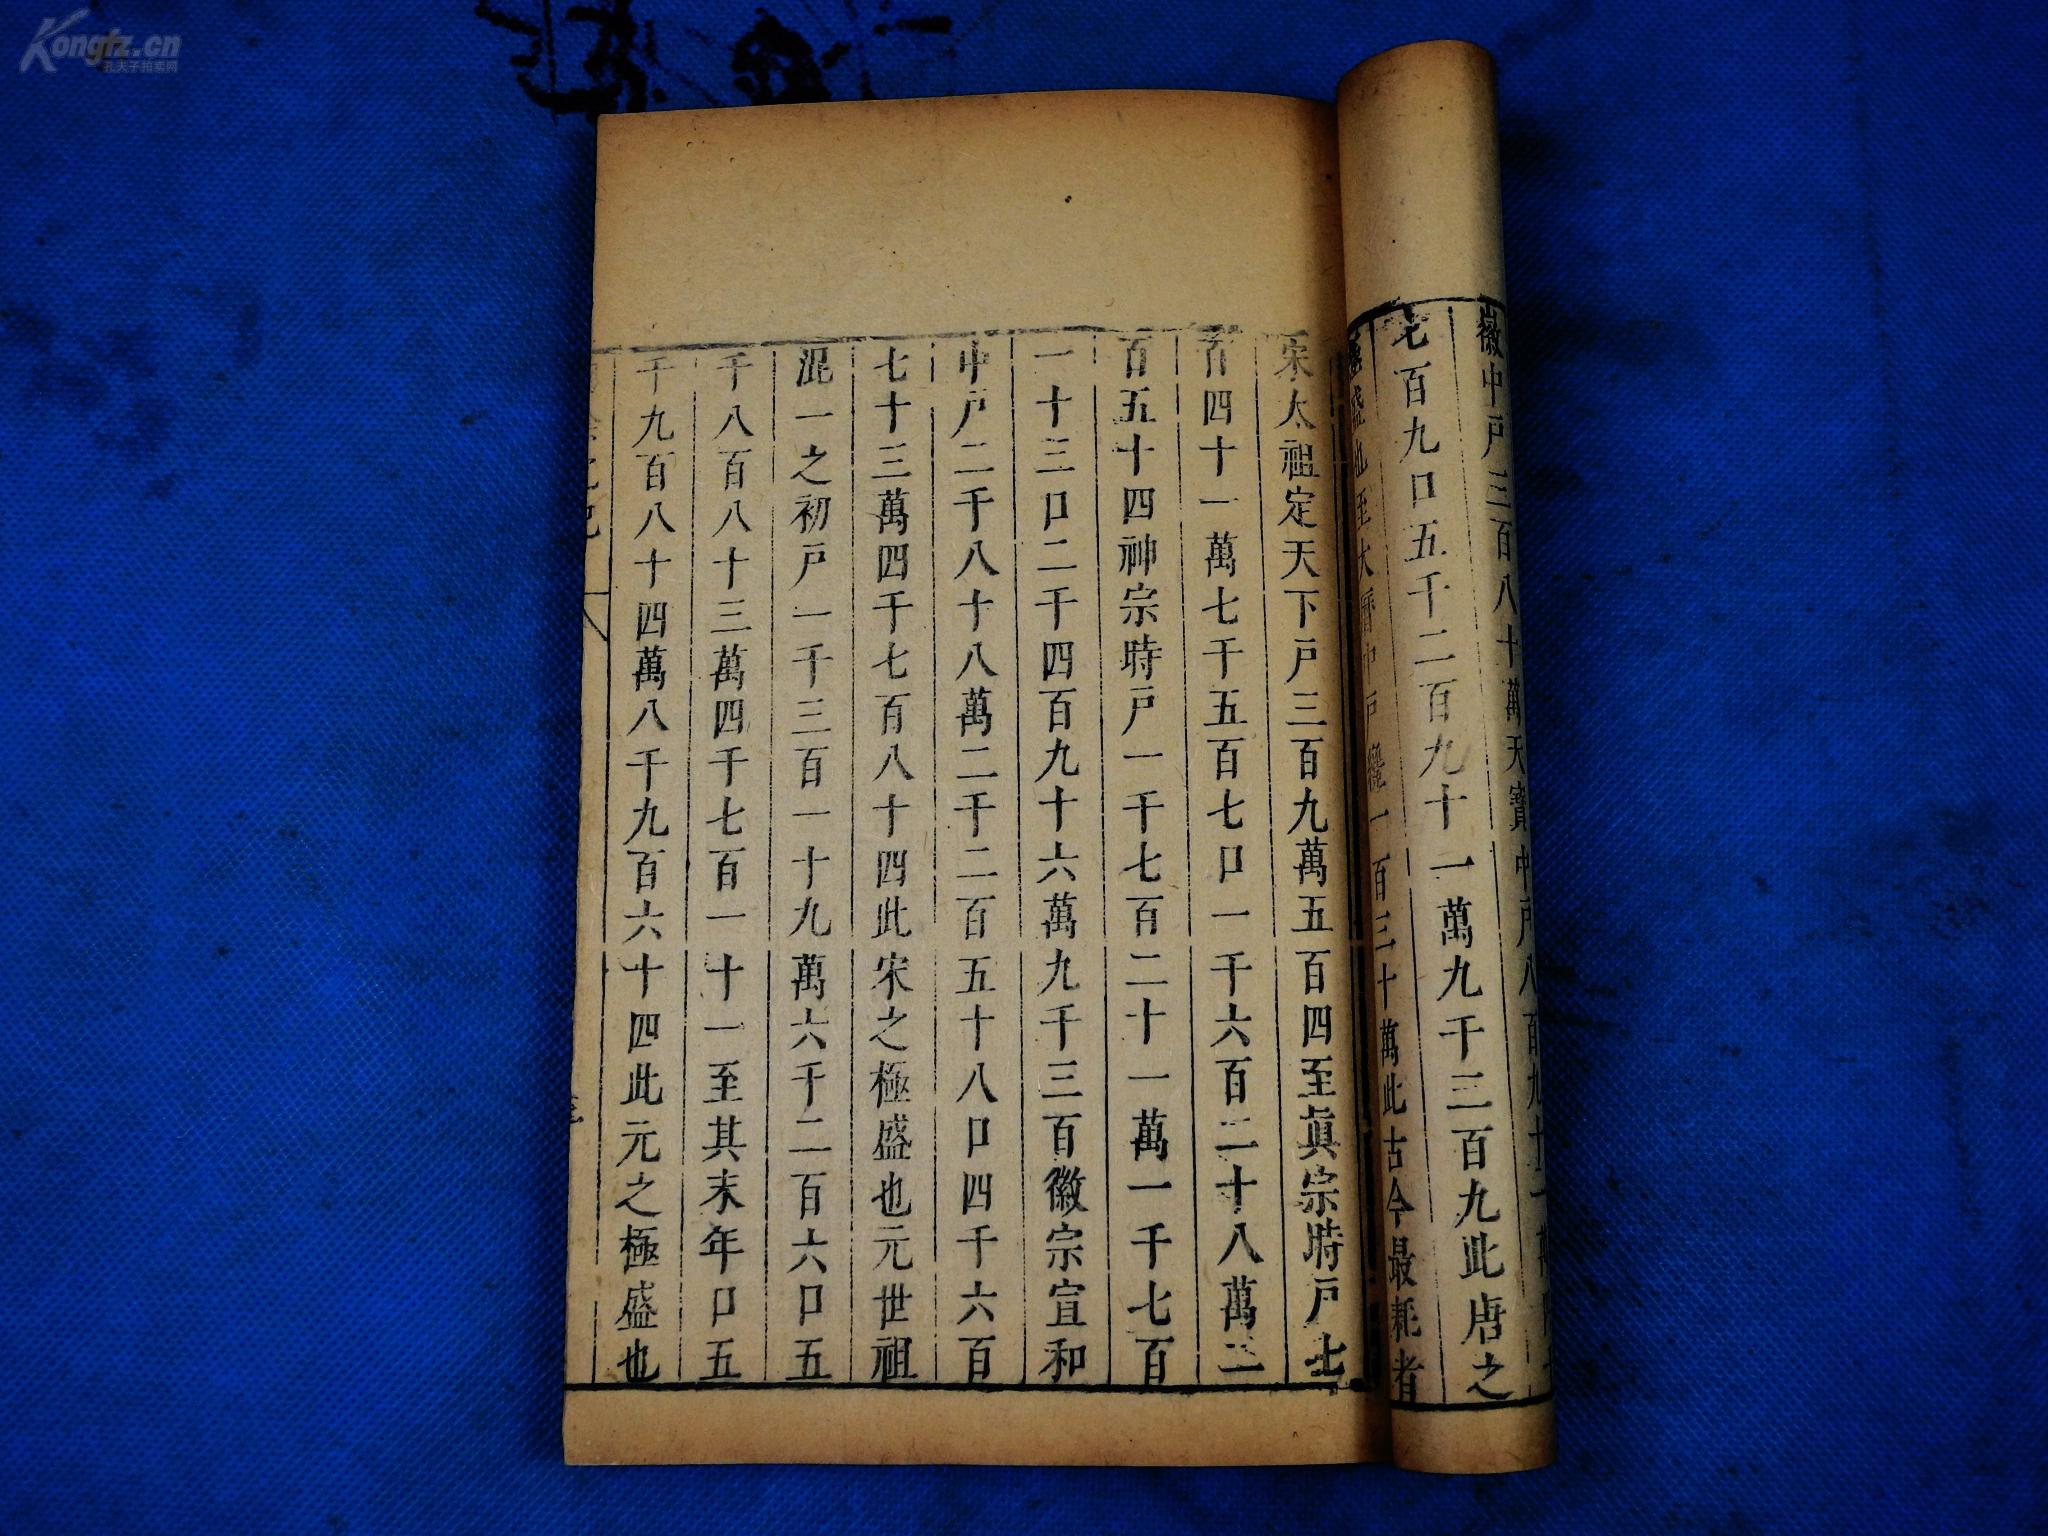 Kongfz.cn
孔夫子拍卖网
徽中戸三百八十萬天寶中戸八百九十一萬四千
七百九口五千二百九十一萬九千三百九此唐之
極盛也至大曆中戸纔一百三十萬此古今最耗者
宋太祖定天下戸三百九萬五百四至眞宗時戸七
百四十一萬七千五百七口一千六百二十八萬二
百五十四神宗時戸一千七百二十一萬一千七百
一十三口二千四百九十六萬九千三百徽宗宣和
中戸二千八十八萬二千二百五十八口四千六百
七十三萬四千七百八十四此宋之極盛也元世祖
混一之初戸一千三百一十九萬六千二百六口五
千八百八十三萬四千七百一十一至其末年口五
千九百八十四萬八千九百六十四此元之極盛也